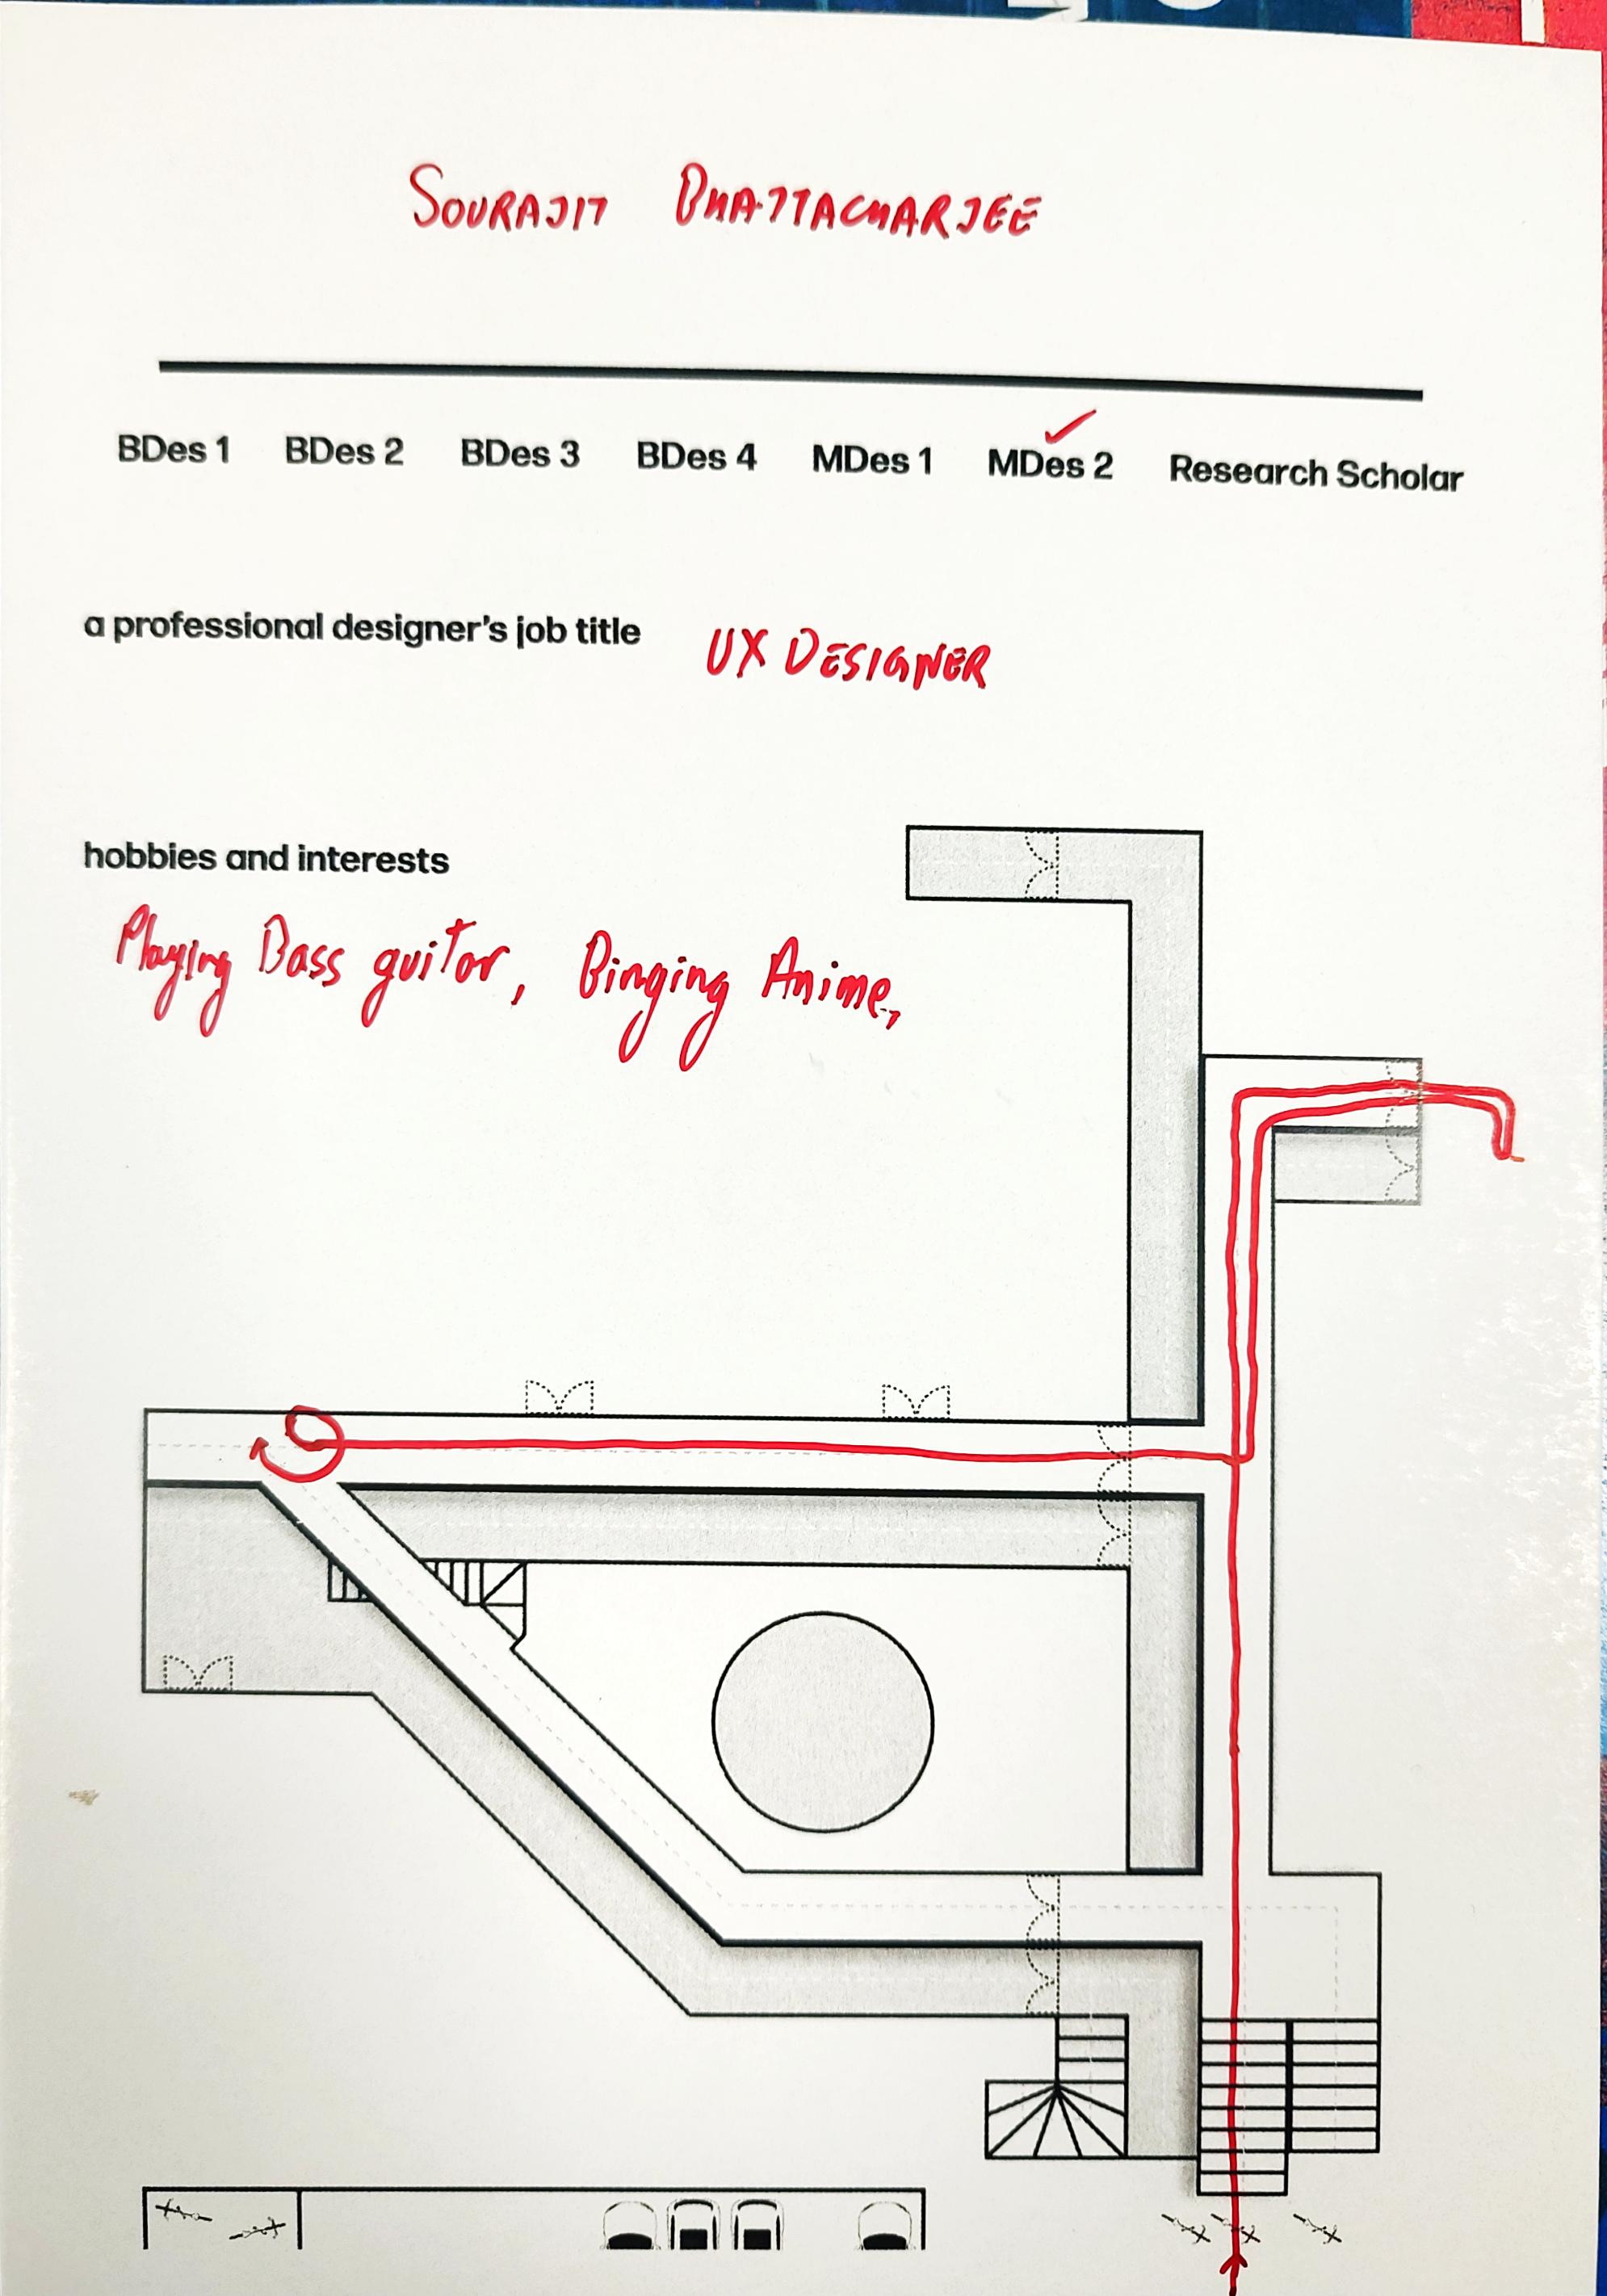 SOURAJIT BHATTACHARJEE
BDes 1 BDes 2 BDes 3 BDes 4 MDes 1 MDes 2 Research Scholar
a professional designer's job title UX DESIGNER
hobbies and interests
Playing Bass guitar, Binging Anime,